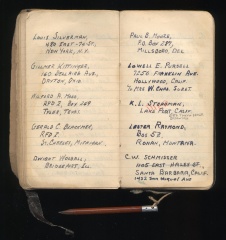 Louis Silverman,
480 East-70-St.
New York, N.Y.
Gilmer K. Minyer,
160 Bellaire Ave
Dayton, Ohio
Alfred A. Hall
RFD 2, Box 269
Tyler, Texas
Gerald C. Blackmer,
R.F.D. 2.
St. Charles, Michigan.
Dwight Woodall,
Bridgeport, Ill.
Paul B. Moore,
P.O. Box 287,
Millsboro, Del.
Lowell E. Pursell
7256 Franklin Ave.
Hollywood, Calif.
To Mrs W. Chas. Scott.
R. L. Steadman,
Lake Port, Calif.
Lester Raymond,
Box 52,
Ronan, Montana.
C.W. Schmisser
1105 East Haley St.
Santa Barbara, Calif.
1402 San Miguel Ave